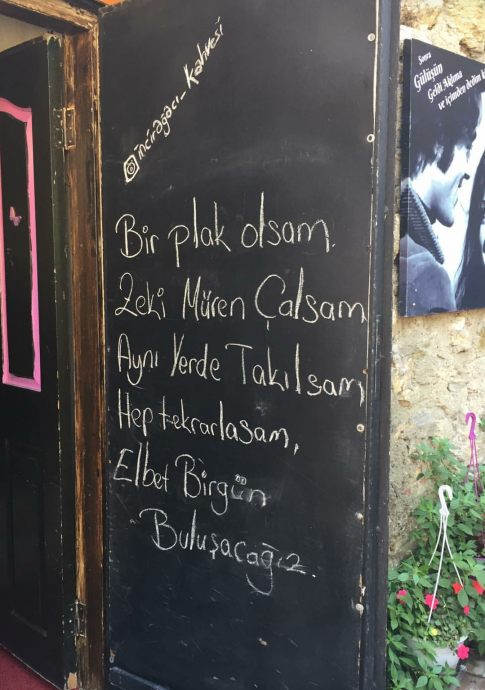 incirağacı_kahvesi
Bir plak olsam.
Zeki Müren Çalsam
Aynı Yerde Takılsam
Hep tekrarlasam,
Elbet Birgün
Buluşacağız.
Sonra
Gülüşün
Geldi Aklıma
ve içimden dedim ki